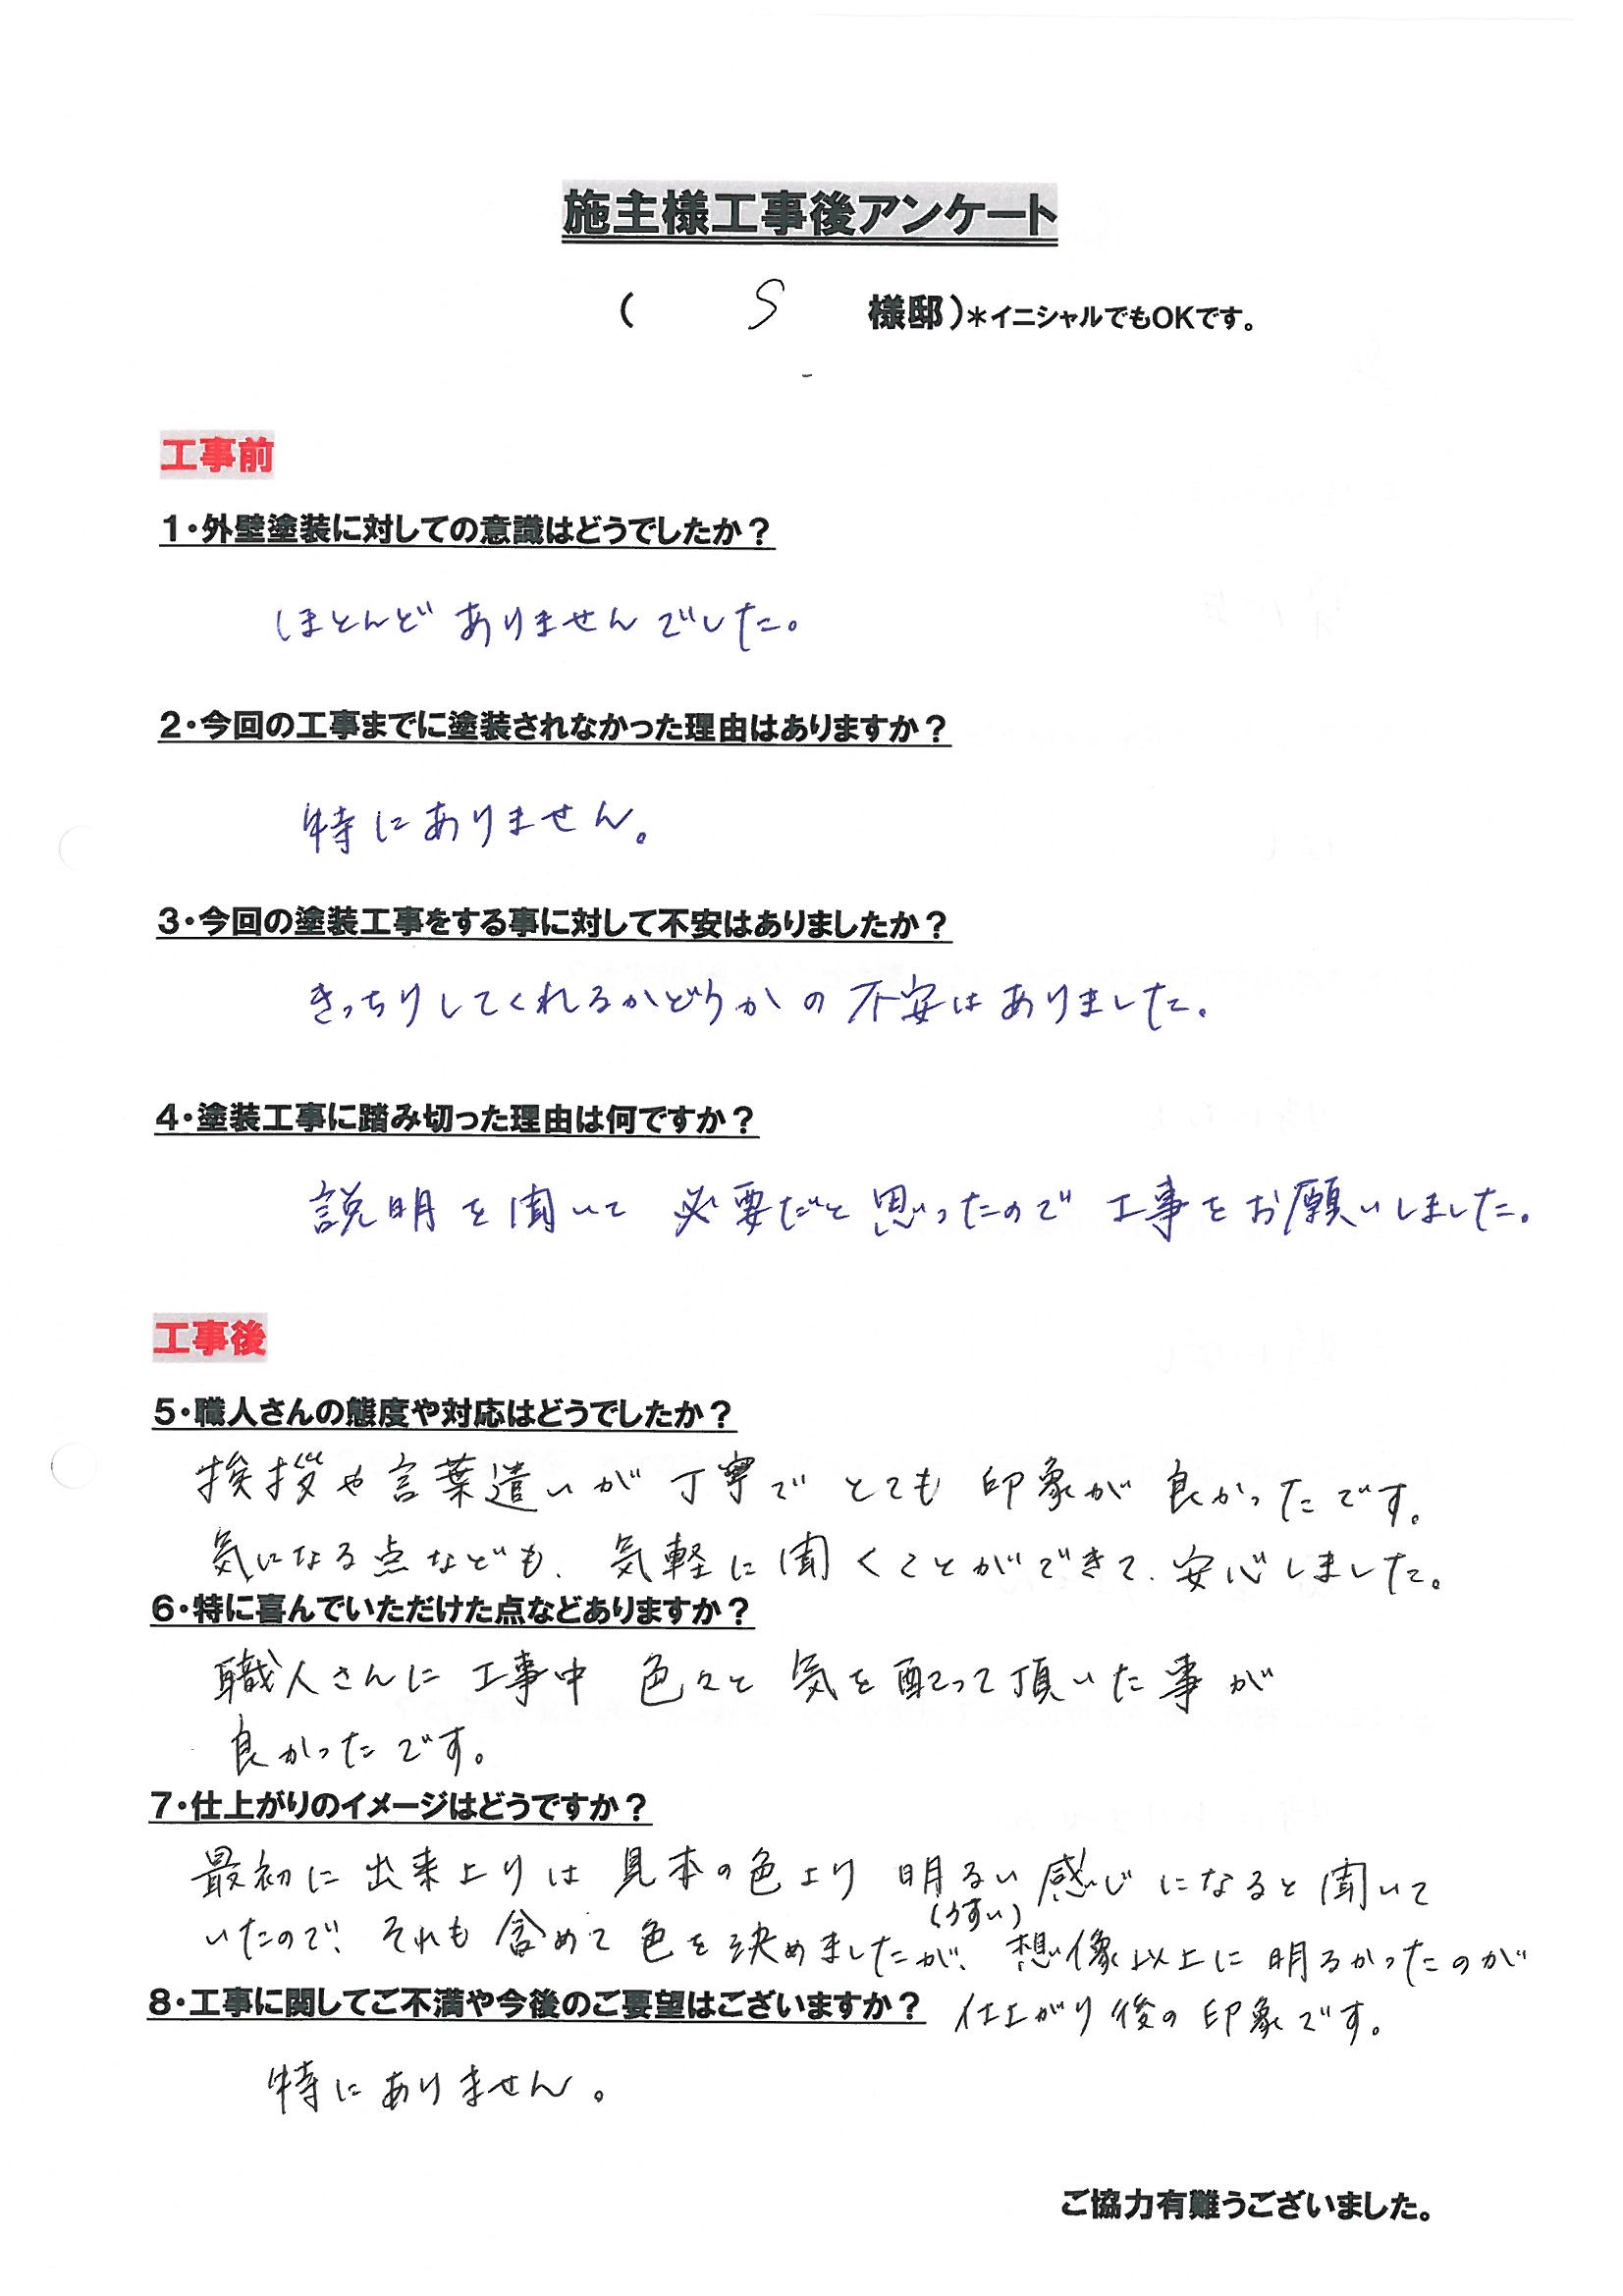 施主様工事後アンケート
( S 様邸)*イニシャルでもOKです。
工事前
1・外壁塗装に対しての意識はどうでしたか?
ほとんどありませんでした。
2・今回の工事までに塗装されなかった理由はありますか?
特にありません。
3・今回の塗装工事をする事に対して不安はありましたか?
きっちりしてくれるかどうかの不安はありました。
4・塗装工事に踏み切った理由は何ですか?
説明を聞いて必要だと思ったので工事をお願いしました。
工事後
5・職人さんの態度や対応はどうでしたか?
挨拶や言葉遣いが丁寧でとても印象が良かったです。
気になる点なども、気軽に聞くことができて、安心しました。
6・特に喜んでいただけた点などありますか?
職人さんに工事中色々と気を配って頂いた事が
良かったです。
7・仕上がりのイメージはどうですか?
最初に出来上りは見本の色より明るい感じになると聞いて
(うすい)
いたので、それも含めて色を決めましたが、想像以上に明るかったのが
仕上がり後の印象です。
8・工事に関してご不満や今後のご要望はございますか?
特にありません。
ご協力有難うございました。